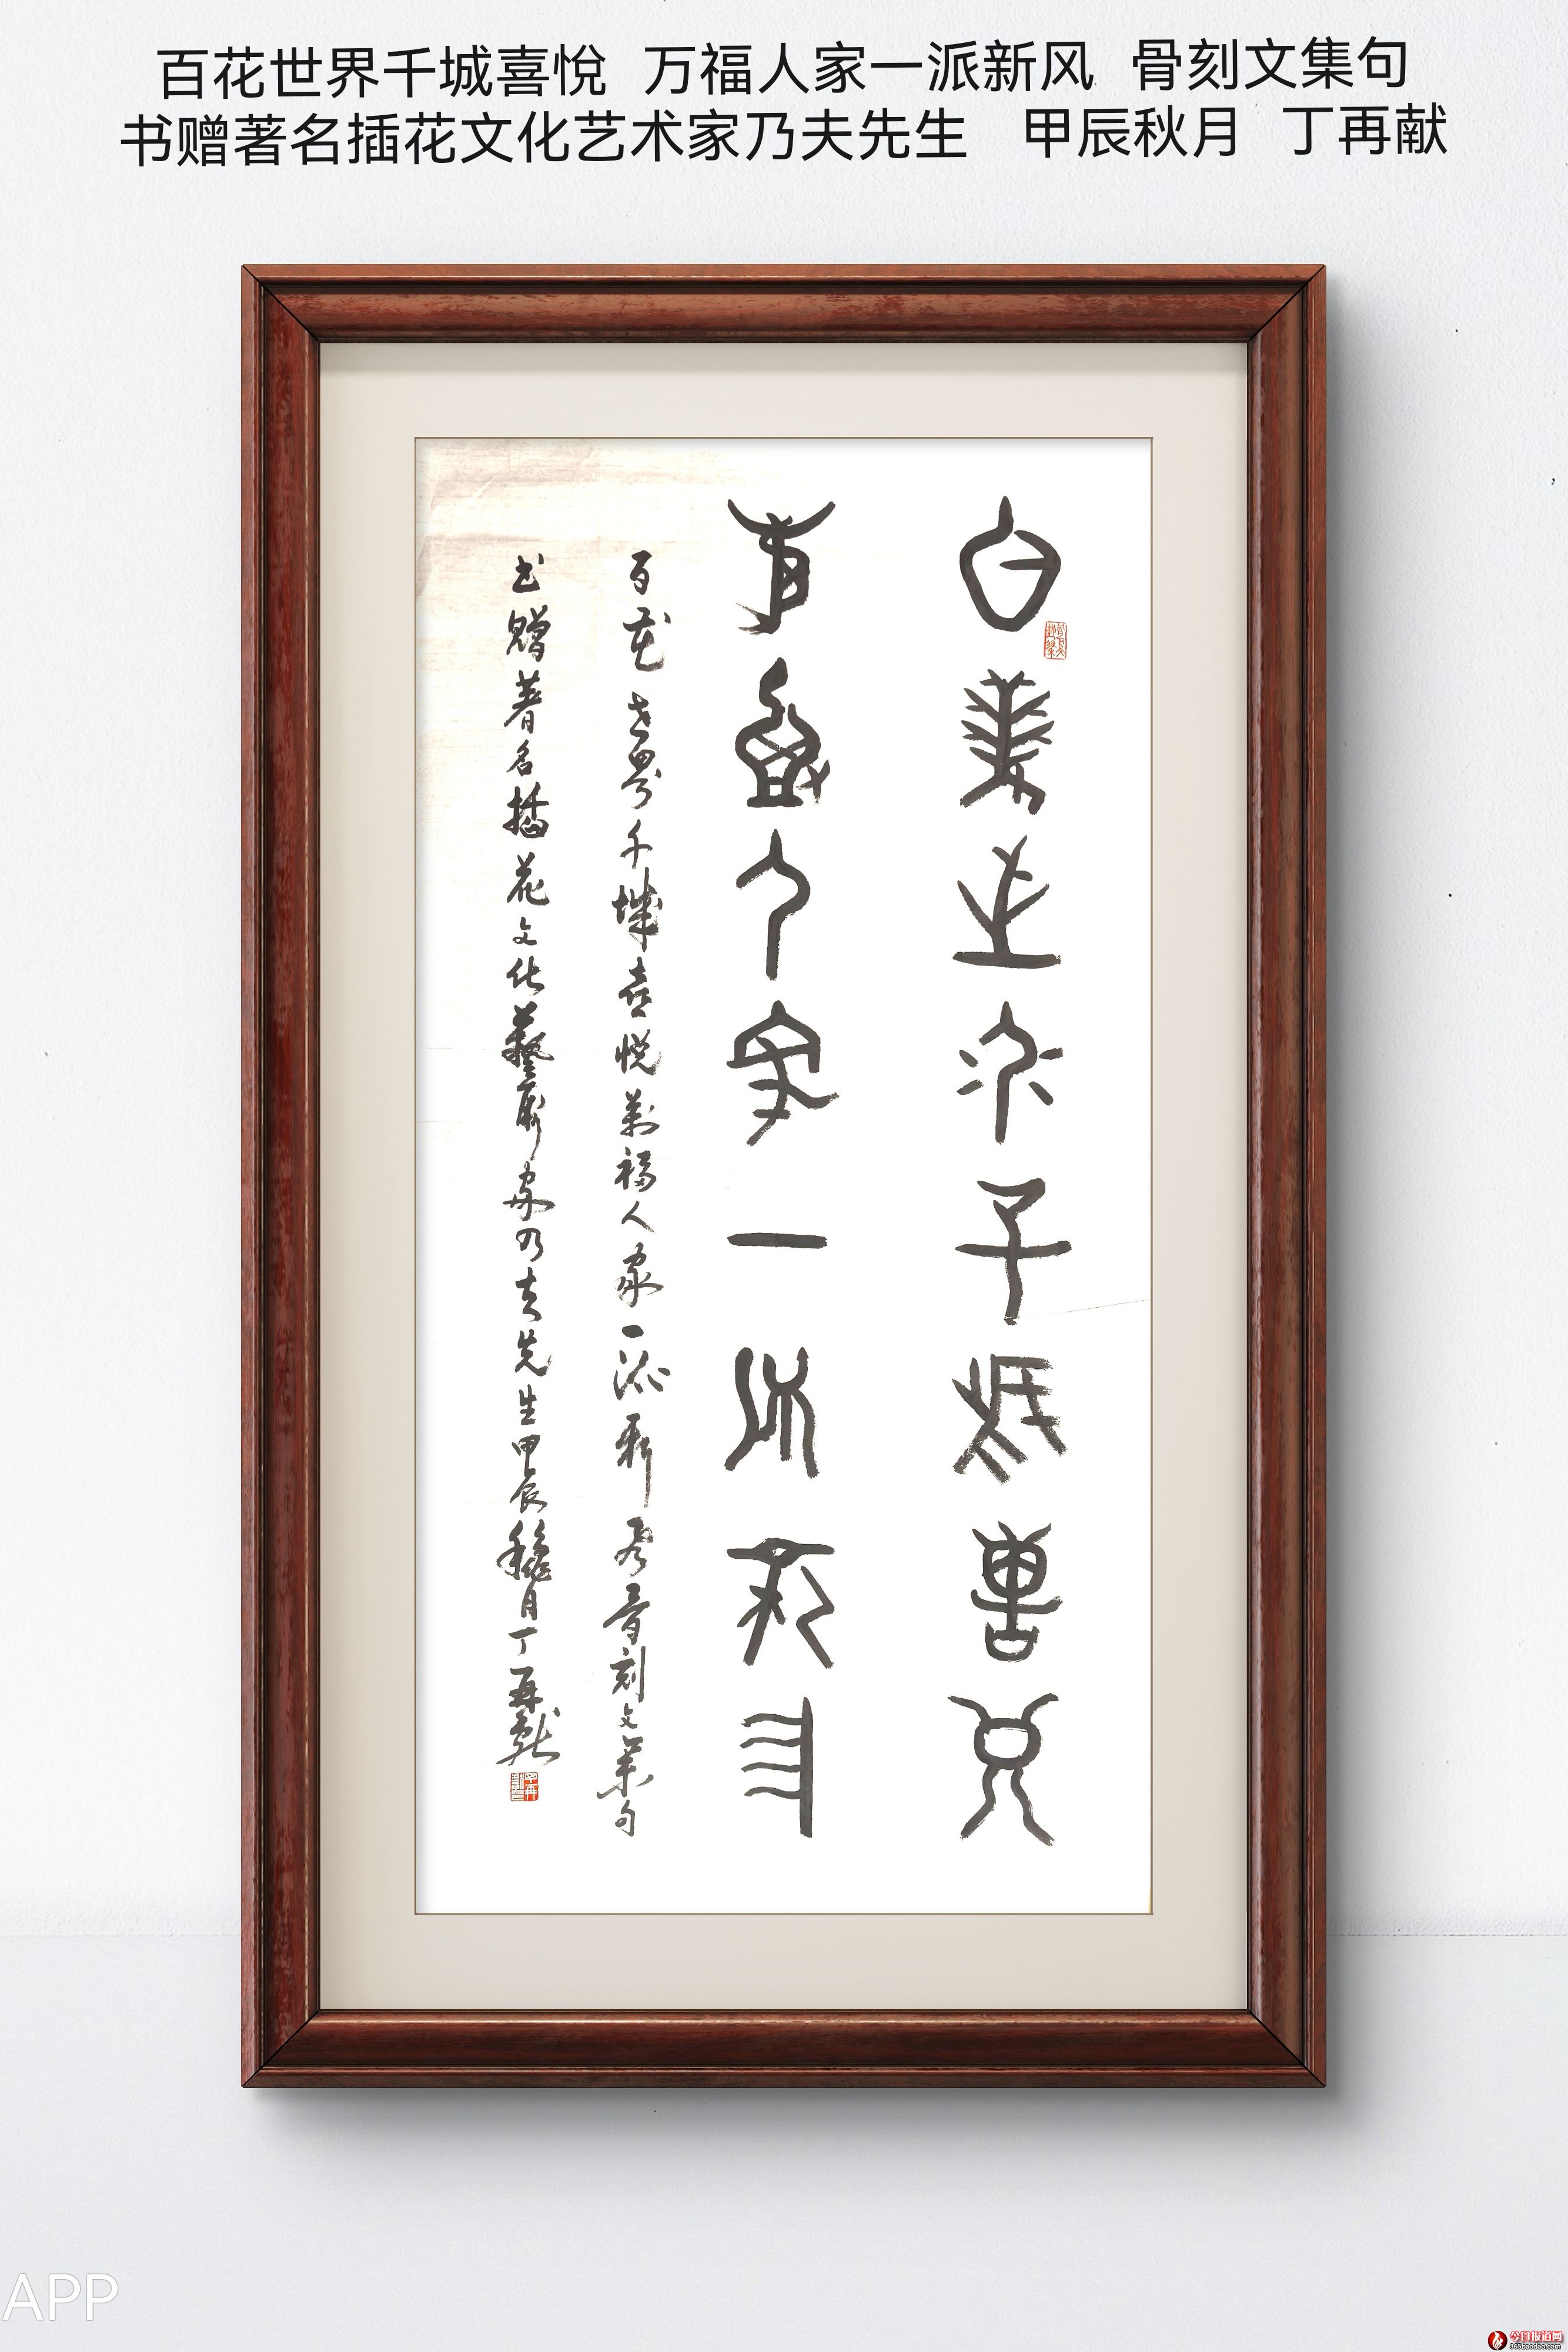 百花世界千城喜悅 万福人家一派新风 骨刻文集句
书赠著名插花文化艺术家乃夫先生 甲辰秋月 丁再献
百花世界千城喜悦
萬福人家一派新风
百花世界千城喜悦萬福人家一派新风骨刻文集句
书赠著名插花文化藝術家乃夫先生甲辰秋月丁再献
APP
今日报道网
365baodao.com